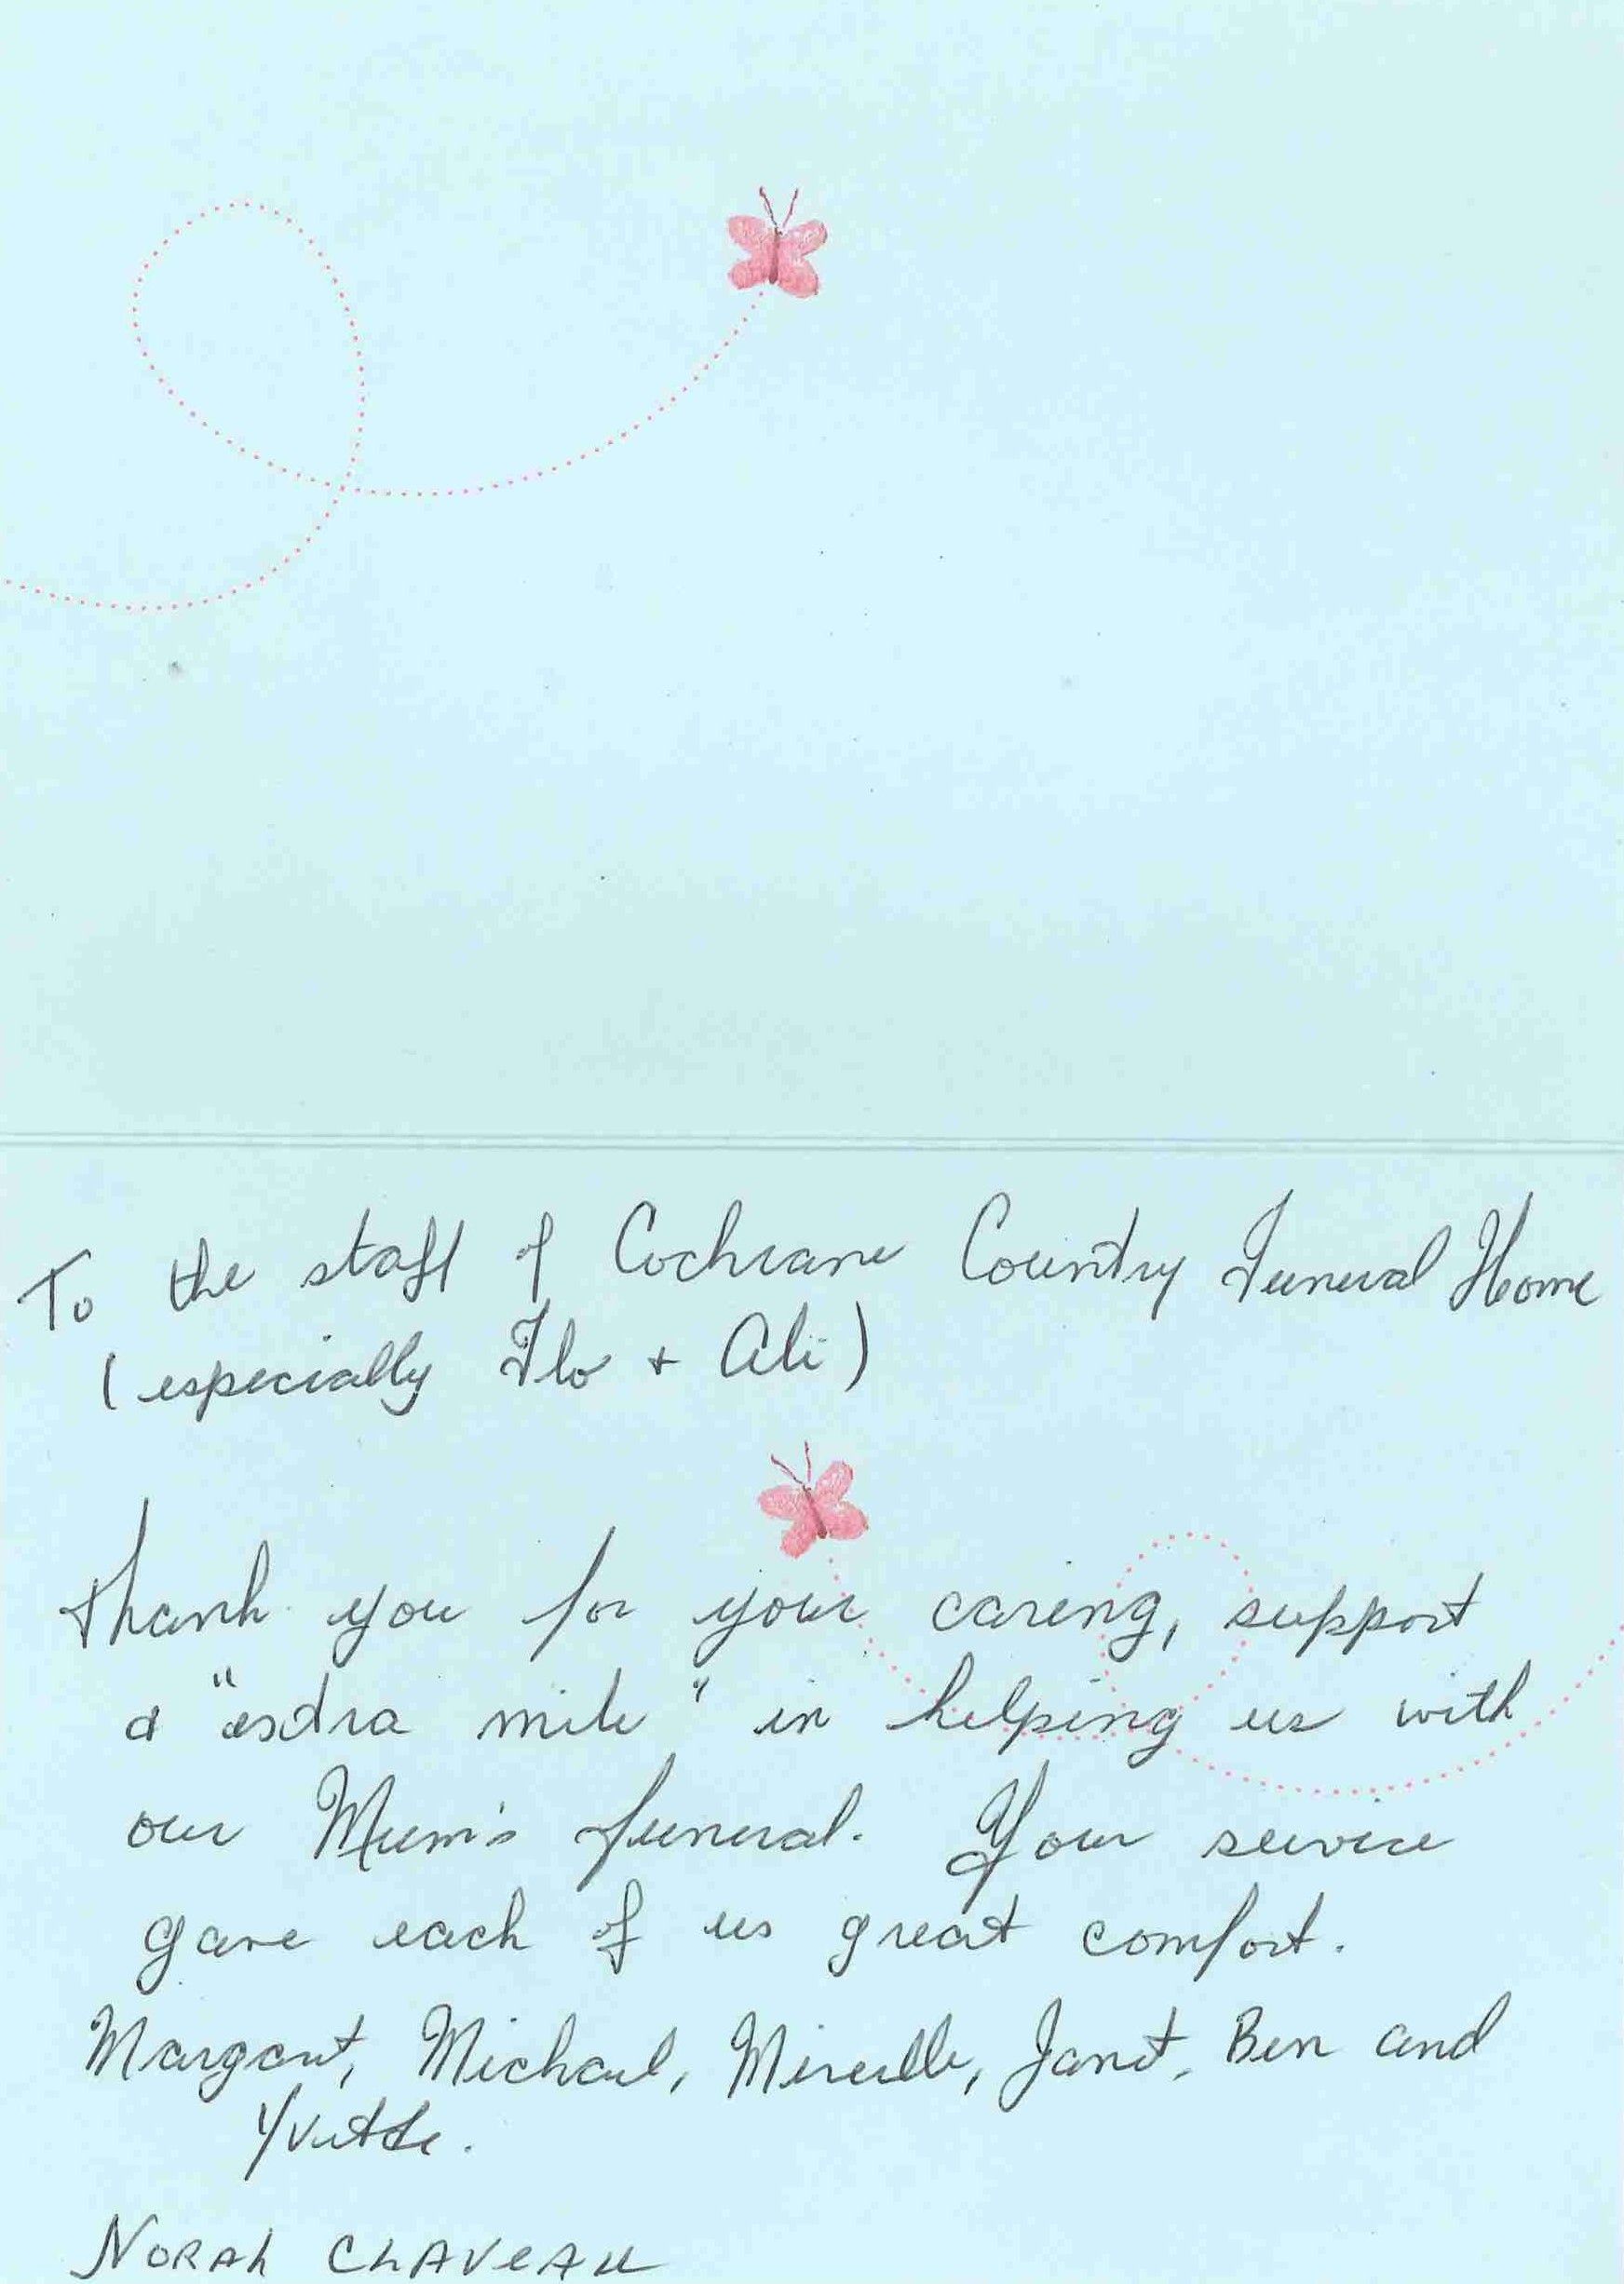 To the staff of Cochrane Country Funeral Home
(especially Flo + Ali)
Thank you for your caring, support
& "extra mile" in helping us with
our Mum's funeral. Your service
gave each of us great comfort.
Margaret, Michael, Mireille, Janet, Ben and
Yvette.
NORAh CLAVeAu